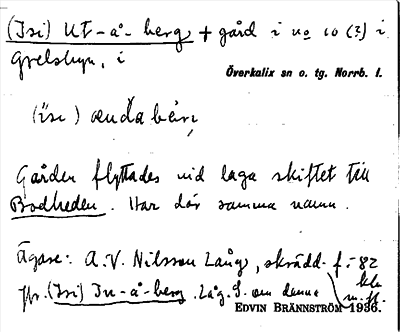 (Isi) Ut-å-berg + gård i no 10 (?) i
Grelsbyn, i
Överkalix sn o. tg. Norrb. l.
(isi)
Gården flyttades vid laga skiftet till
Bodheden. Har där samma namn.
Ägare: A.V. Nilsson Lång, skrädd. f. 82
(Isi) In-å-berg. Låg S. om denna
EDVIN BRÄNNSTRÖM 1936.